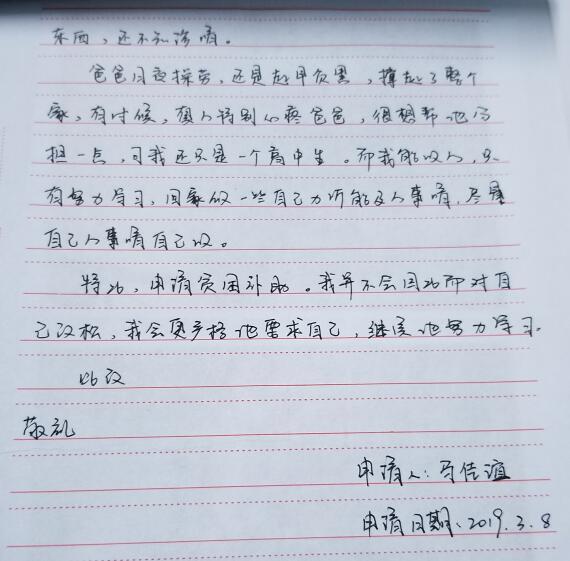 东西，还不知珍惜。
爸爸日夜操劳，还是起早贪黑，撑起了整个
家，有时候，真的特别心疼爸爸，很想帮他分
担一点，可我还只是一个高中生。而我能做的，只
有努力学习，回家做一些自己力所能及的事情，尽量
自己的事情自己做。
特此，申请贫困补助。我并不会因此而对自
己放松，我会更严格地要求自己，继续地努力学习。
此致
敬礼
申请人：马佳谊
申请日期：2019.3.8